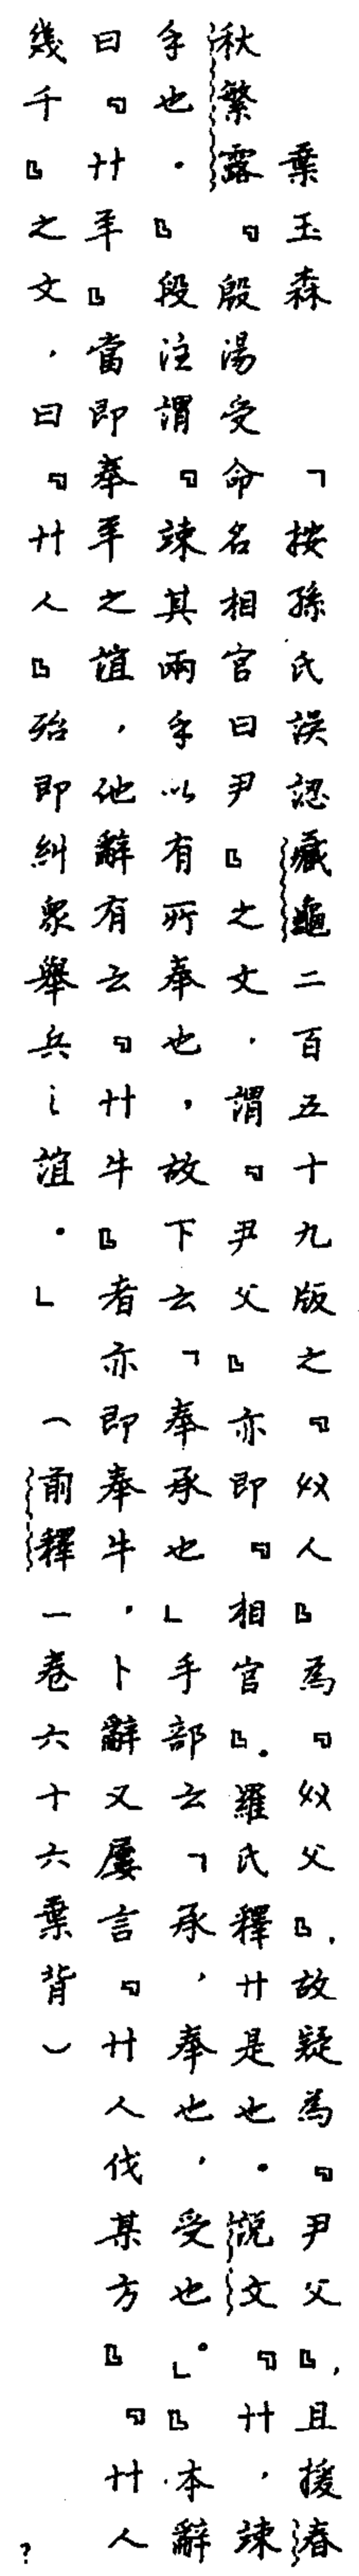 葉玉森　　「按孫氏誤認藏龜二百五十九版之『奴人』為『奴父』，故疑為『尹父』，且援春
秋繁露『殷湯受命名相官曰尹』之文，謂『尹父』亦即『相官』。羅氏釋廾是也。說文『廾，竦
手也。』段注謂『竦其兩手以有所奉也，故下云「奉承也」手部云「承，奉也，受也」。』本辭
曰『廾羊』當即奉羊之誼，他辭有云『廾牛』者亦即奉牛。卜辭又屢言『廾人伐某方』『廾人
幾千』之文，曰『廾人』殆即糾眾舉兵之誼。」　（前釋一卷六十六葉背）